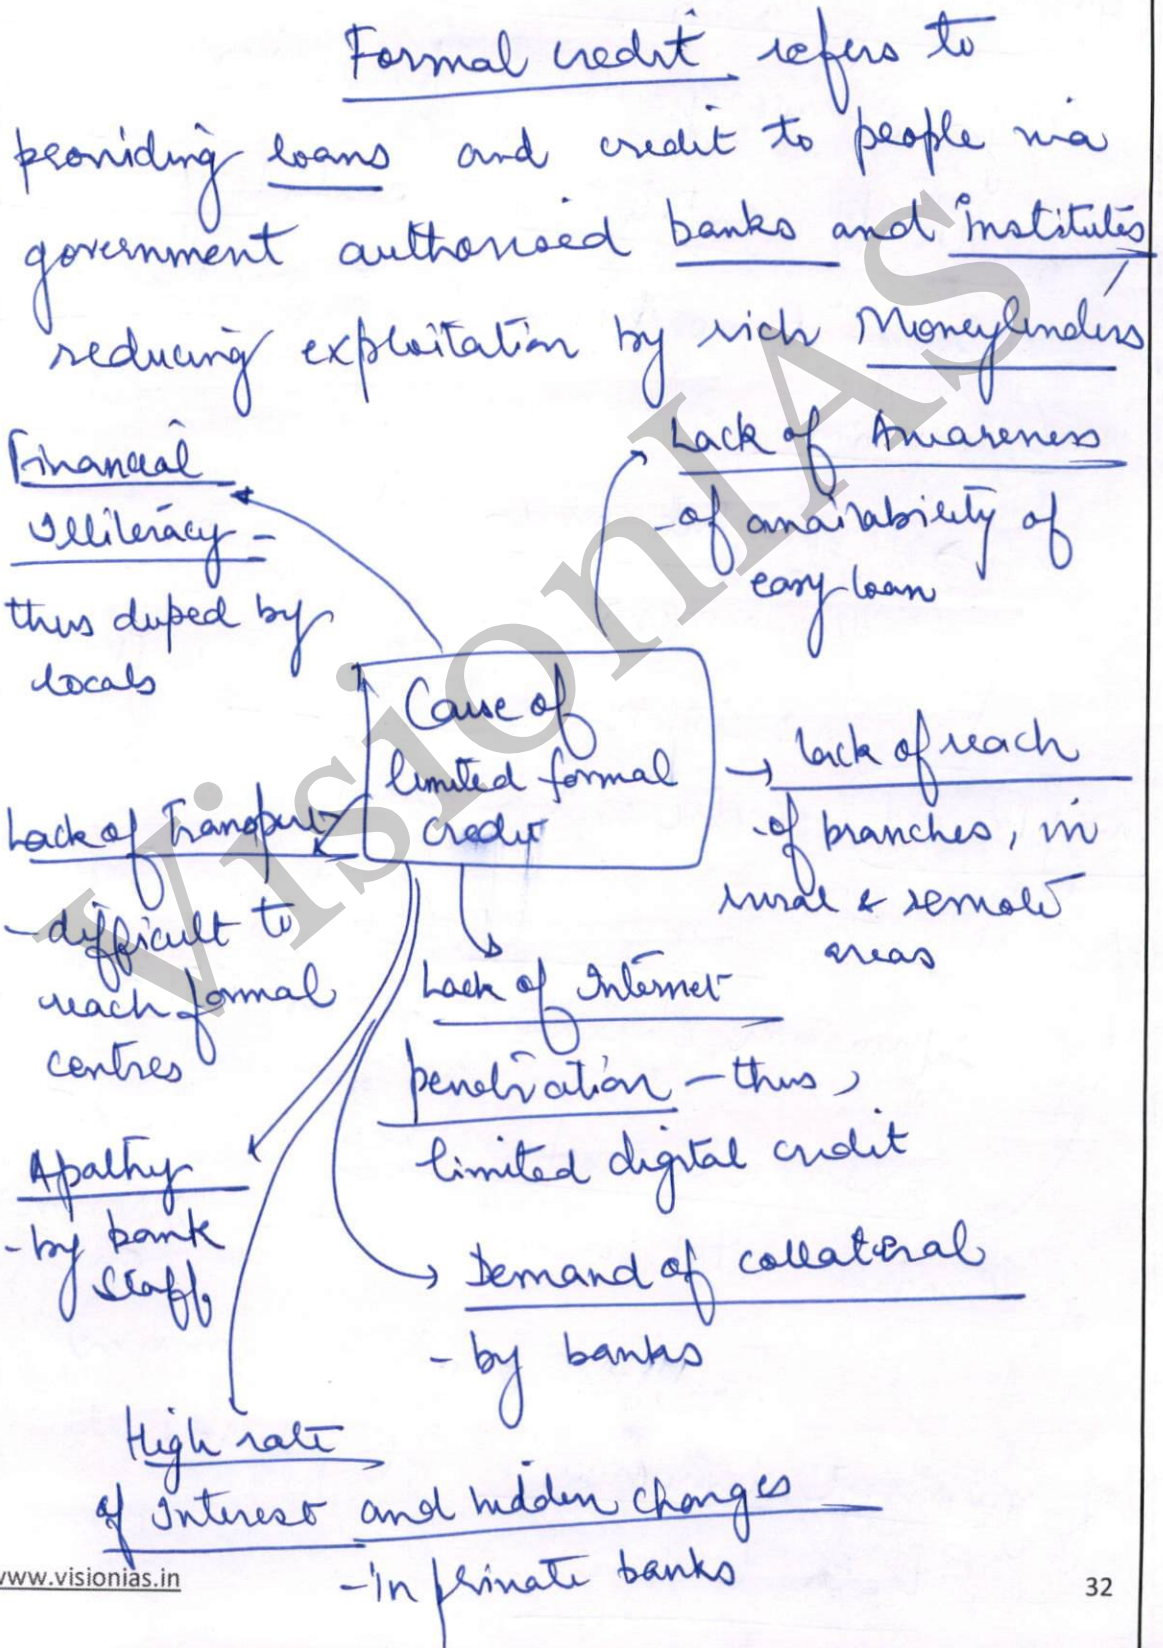 Formal credit refers to
providing loans and credit to people via
government authorised banks and institutes
reducing exploitation by rich Moneylenders
Financial
Illiteracy -
thus duped by
locals
Lack of Awareness
- of availability of
easy loan
Cause of
limited formal
credit
Lack of Transport
- difficult to
reach formal
centres
→ lack of reach
- of branches, in
rural & remote
areas
Lack of Internet
penetration - thus,
limited digital credit
Apathy
- by bank
staff
Demand of collateral
- by banks
High rate
of Interest and hidden charges
- in private banks
VisionIAS
www.visionias.in
32